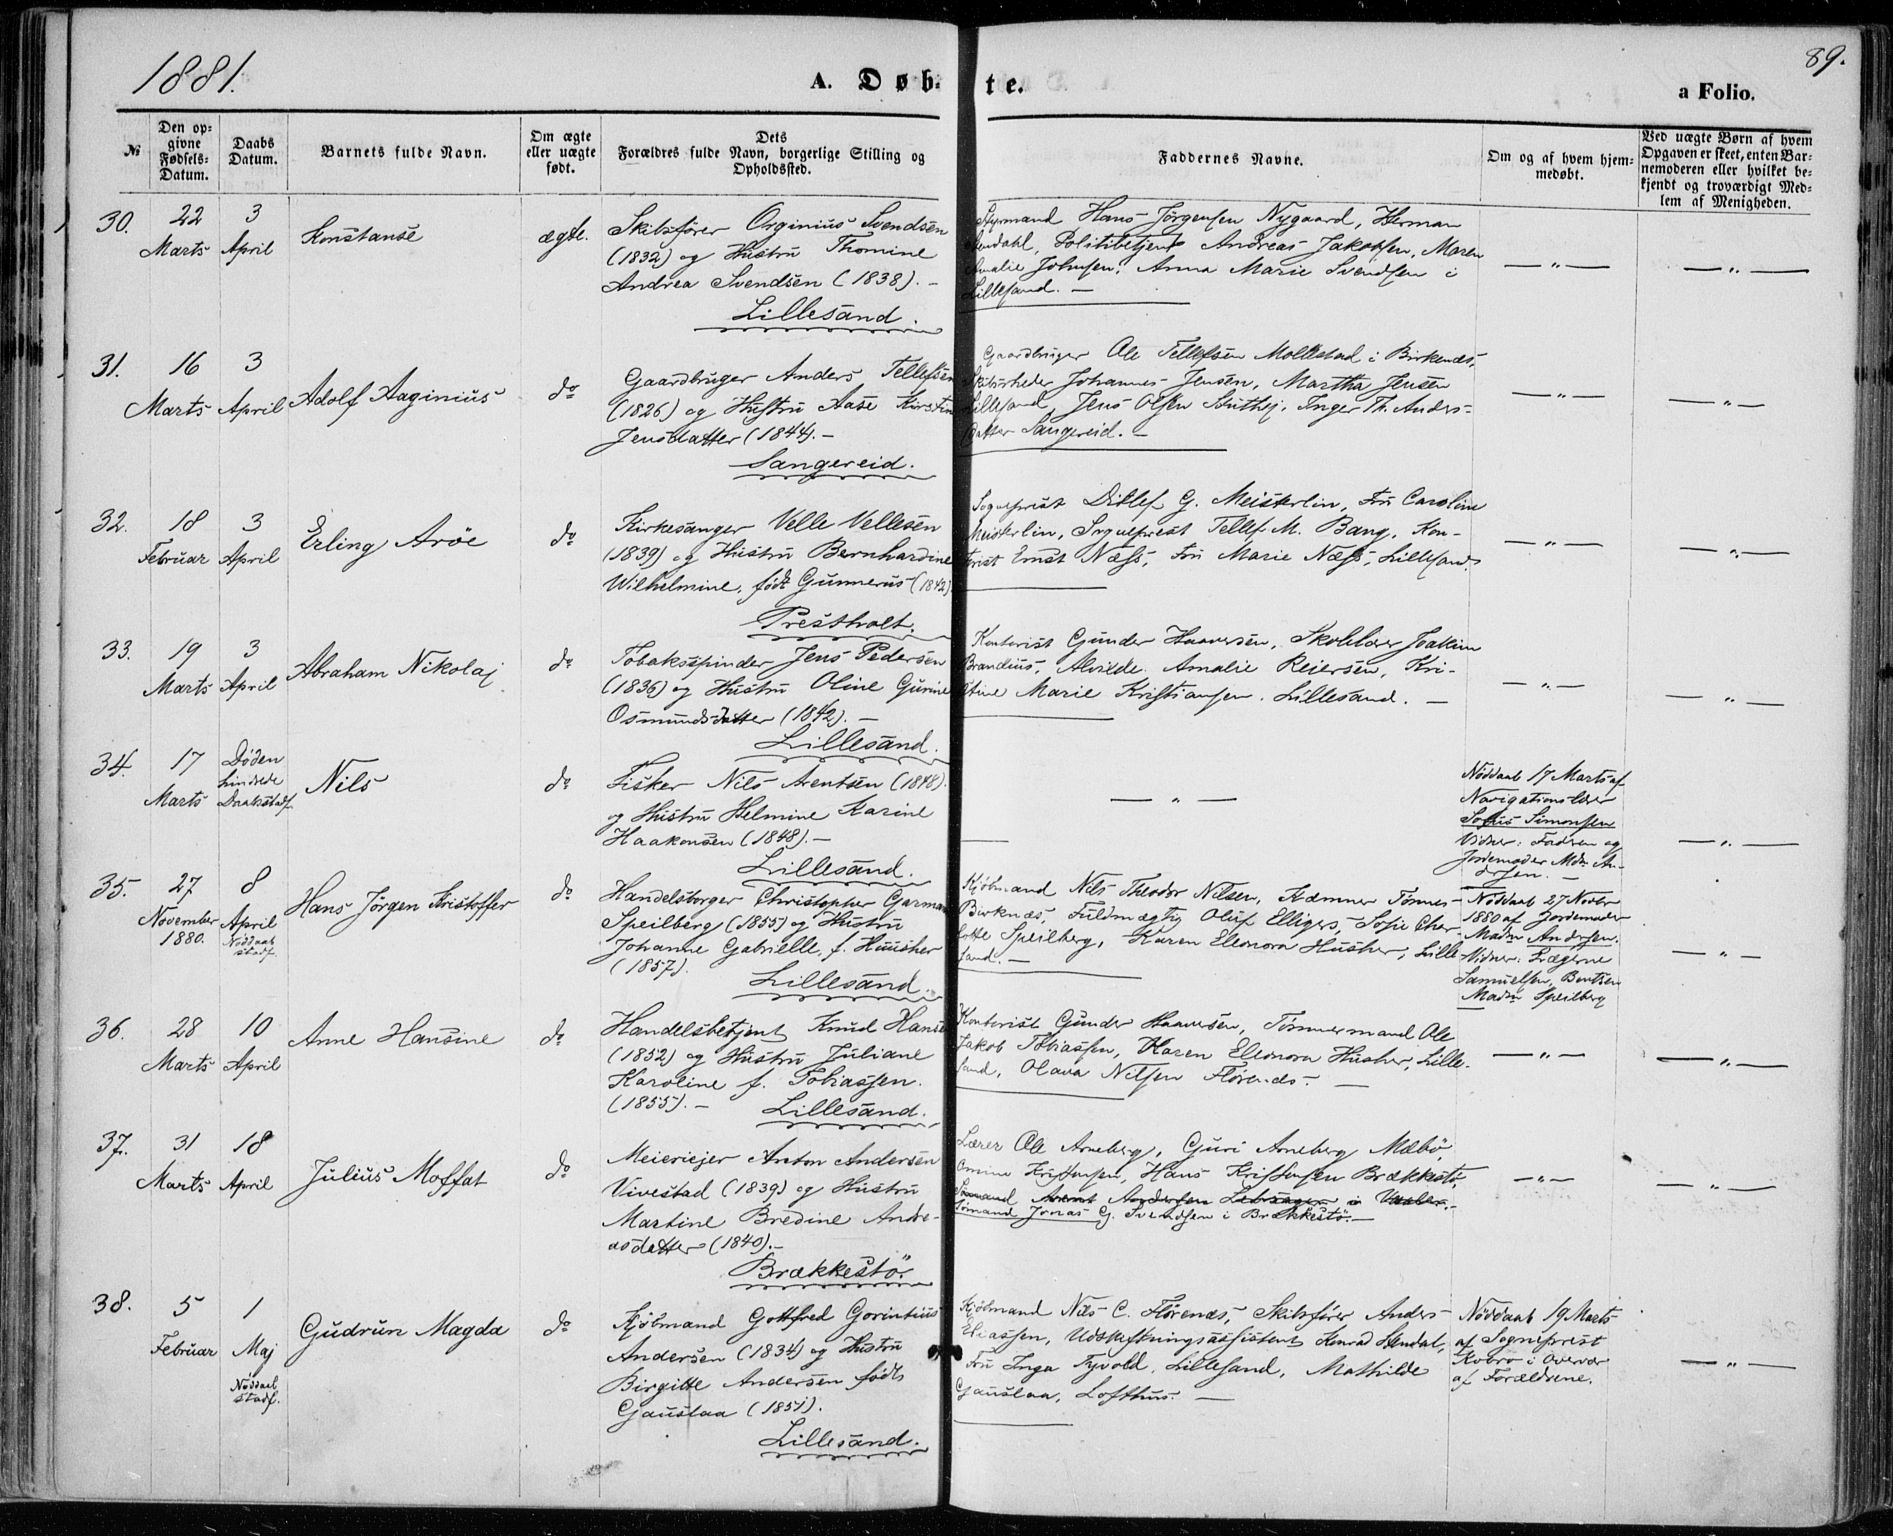 1881.
A. Døb-
te.
89.
a Folio.
№
Den op-
givne
Fødsels-
Datum.
Daabs
Datum.
Barnets fulde Navn.
Om ægte
eller uægte
født.
Dets
Forældres fulde Navn, borgerlige Stilling og
Opholdssted.
Faddernes Navne.
Om og af hvem hjem-
medøbt.
Ved uægte Børn af hvem
Opgaven er skeet, enten Bar-
nemoderen eller hvilket be-
kjendt og troværdigt Med-
lem af Menigheden.
30.
22
Marts
3
April
Konstanse
ægte.
Skibsfører Orginius Svendsen
(1832) og Hustru Thomine
Andrea Svendsen (1838). -
Lillesand.
Styrmand Hans Jørgensen Nygaard, Herman
Stendahl, Politibetjent Andreas Jakobsen, Maren
Amalie Johnsen, Anna Marie Svendsen i
Lillesand. -
— „ —
— „ —
31.
16
Marts
3
April
Adolf Aaginius
do
Gaardbruger Anders Tellefsen
(1826) og Hustru Aase Kirstin
Jensdatter (1844). -
Sangereid.
Gaardbruger Ole Tellefsen Mollestad i Birkenæs,
Skibsrheder Johannes Jensen, Martha Jensen
Lillesand, Jens Olsen Stuthej, Inger Th. Anders-
datter Sangereid. -
— „ —
— „ —
32.
18
Februar
3
April
Erling Arøe
do
Kirkesanger Velle Vellesen
(1839) og Hustru Bernhardine
Wilhelmine, født Gunnerus (1842)
Prestholt.
Sogneprest Ditlef G. Meisterlin, Fru Caroline
Meisterlin, Sogneprest Tellef M. Bang, Kon-
torist Ernst Næss, Fru Marie Næss, Lillesand.
— „ —
— „ —
33.
19
Marts
3
April
Abraham Nikolaj
do
Tobaksspinder Jens Pedersen
(1836) og Hustru Oline Gurine
Osmundsdatter (1842). -
Lillesand.
Kontorist Gunder Haaversen, Skolelærer Joakim
Brandius, Alvilde Amalie Reiersen, Kri-
stine Marie Kristiansen. Lillesand. -
— „ —
— „ —
34.
17
Marts
Døden
hindrede
Daabstadf.
Nils
do
Fisker Nils Arentsen (1848).
og Hustru Helmine Karine
Haakonsen (1848). -
Lillesand.
— „ —
Nøddaab 17 Marts af
Navigationslærer
Sofus Simonsen
Vidner: Fadren og
Jordemoder Mdm An-
dersen. -
— „ —
35.
27
November
1880.
8
April
Nøddaab
stadf.
Hans Jørgen Kristoffer
do
Handelsborger Christopher Garman
Speilberg (1855) og Hustru
Johanne Gabrielle, f. Huusher
(1857).
Lillesand.
Kjøbmand Nils Theodor Nilsen, Kæmner Tønnes
Birknæs, Fuldmægtig Oluf Elligers, Sofie Char-
lotte Speilberg, Karen Eleonora Husher, Lille-
sand. -
Nøddaab 27 Novbr
1880 af Jordemoder
Madm Andersen.
Vidner: Frøgerne
Samuelsen, Bentsen
Madm Speilberg
— „ —
36.
28
Marts
10
April
Anne Hansine
do
Handelsbetjent Knud Hansen
(1852) og Hustru Juliane
Karoline f. Tobiassen.
(1855). -
Lillesand.
Kontorist Gunder Haaversen, Tømmermand Ole
Jakob Tobiassen, Karen Eleonora Husher, Lille-
sand, Olava Nilsen Flørenæs. -
— „ —
— „ —
37.
31
Marts
18
April
Julius Moffat
do
Meieriejer Anton Andersen
Vivestad (1839) og Hustru
Martine Bredine Andre-
asdatter (1840). -
Brækkestø.
Lærer Ole Arneberg, Guri Arneberg Mæbø,
Omine Kristensen, Hans Kristensen Brækkestø,
Sømand Arent Andersen
Sømand Jonas G. Svendsen i Brækkestø. -
— „ —
— „ —
38.
5
Februar
1
Maj
Nøddaab
stadf.
Gudrun Magda
do
Kjøbmand Gottfred Gorintius
Andersen (1834) og Hustru
Birgitte Andersen født
Gauslaa (1851).
Lillesand.
Kjøbmand Nils C. Flørenæs, Skibsfører Anders
Eliassen, Udskiftningsassistent Konrad Stendal,
Fru Inga Tyvold, Lillesand, Mathilde
Gauslaa, Lofthus. -
Nøddaab 19 Marts
af Sogneprest
Kobro i Overvær
af Forældrene.
— „ —